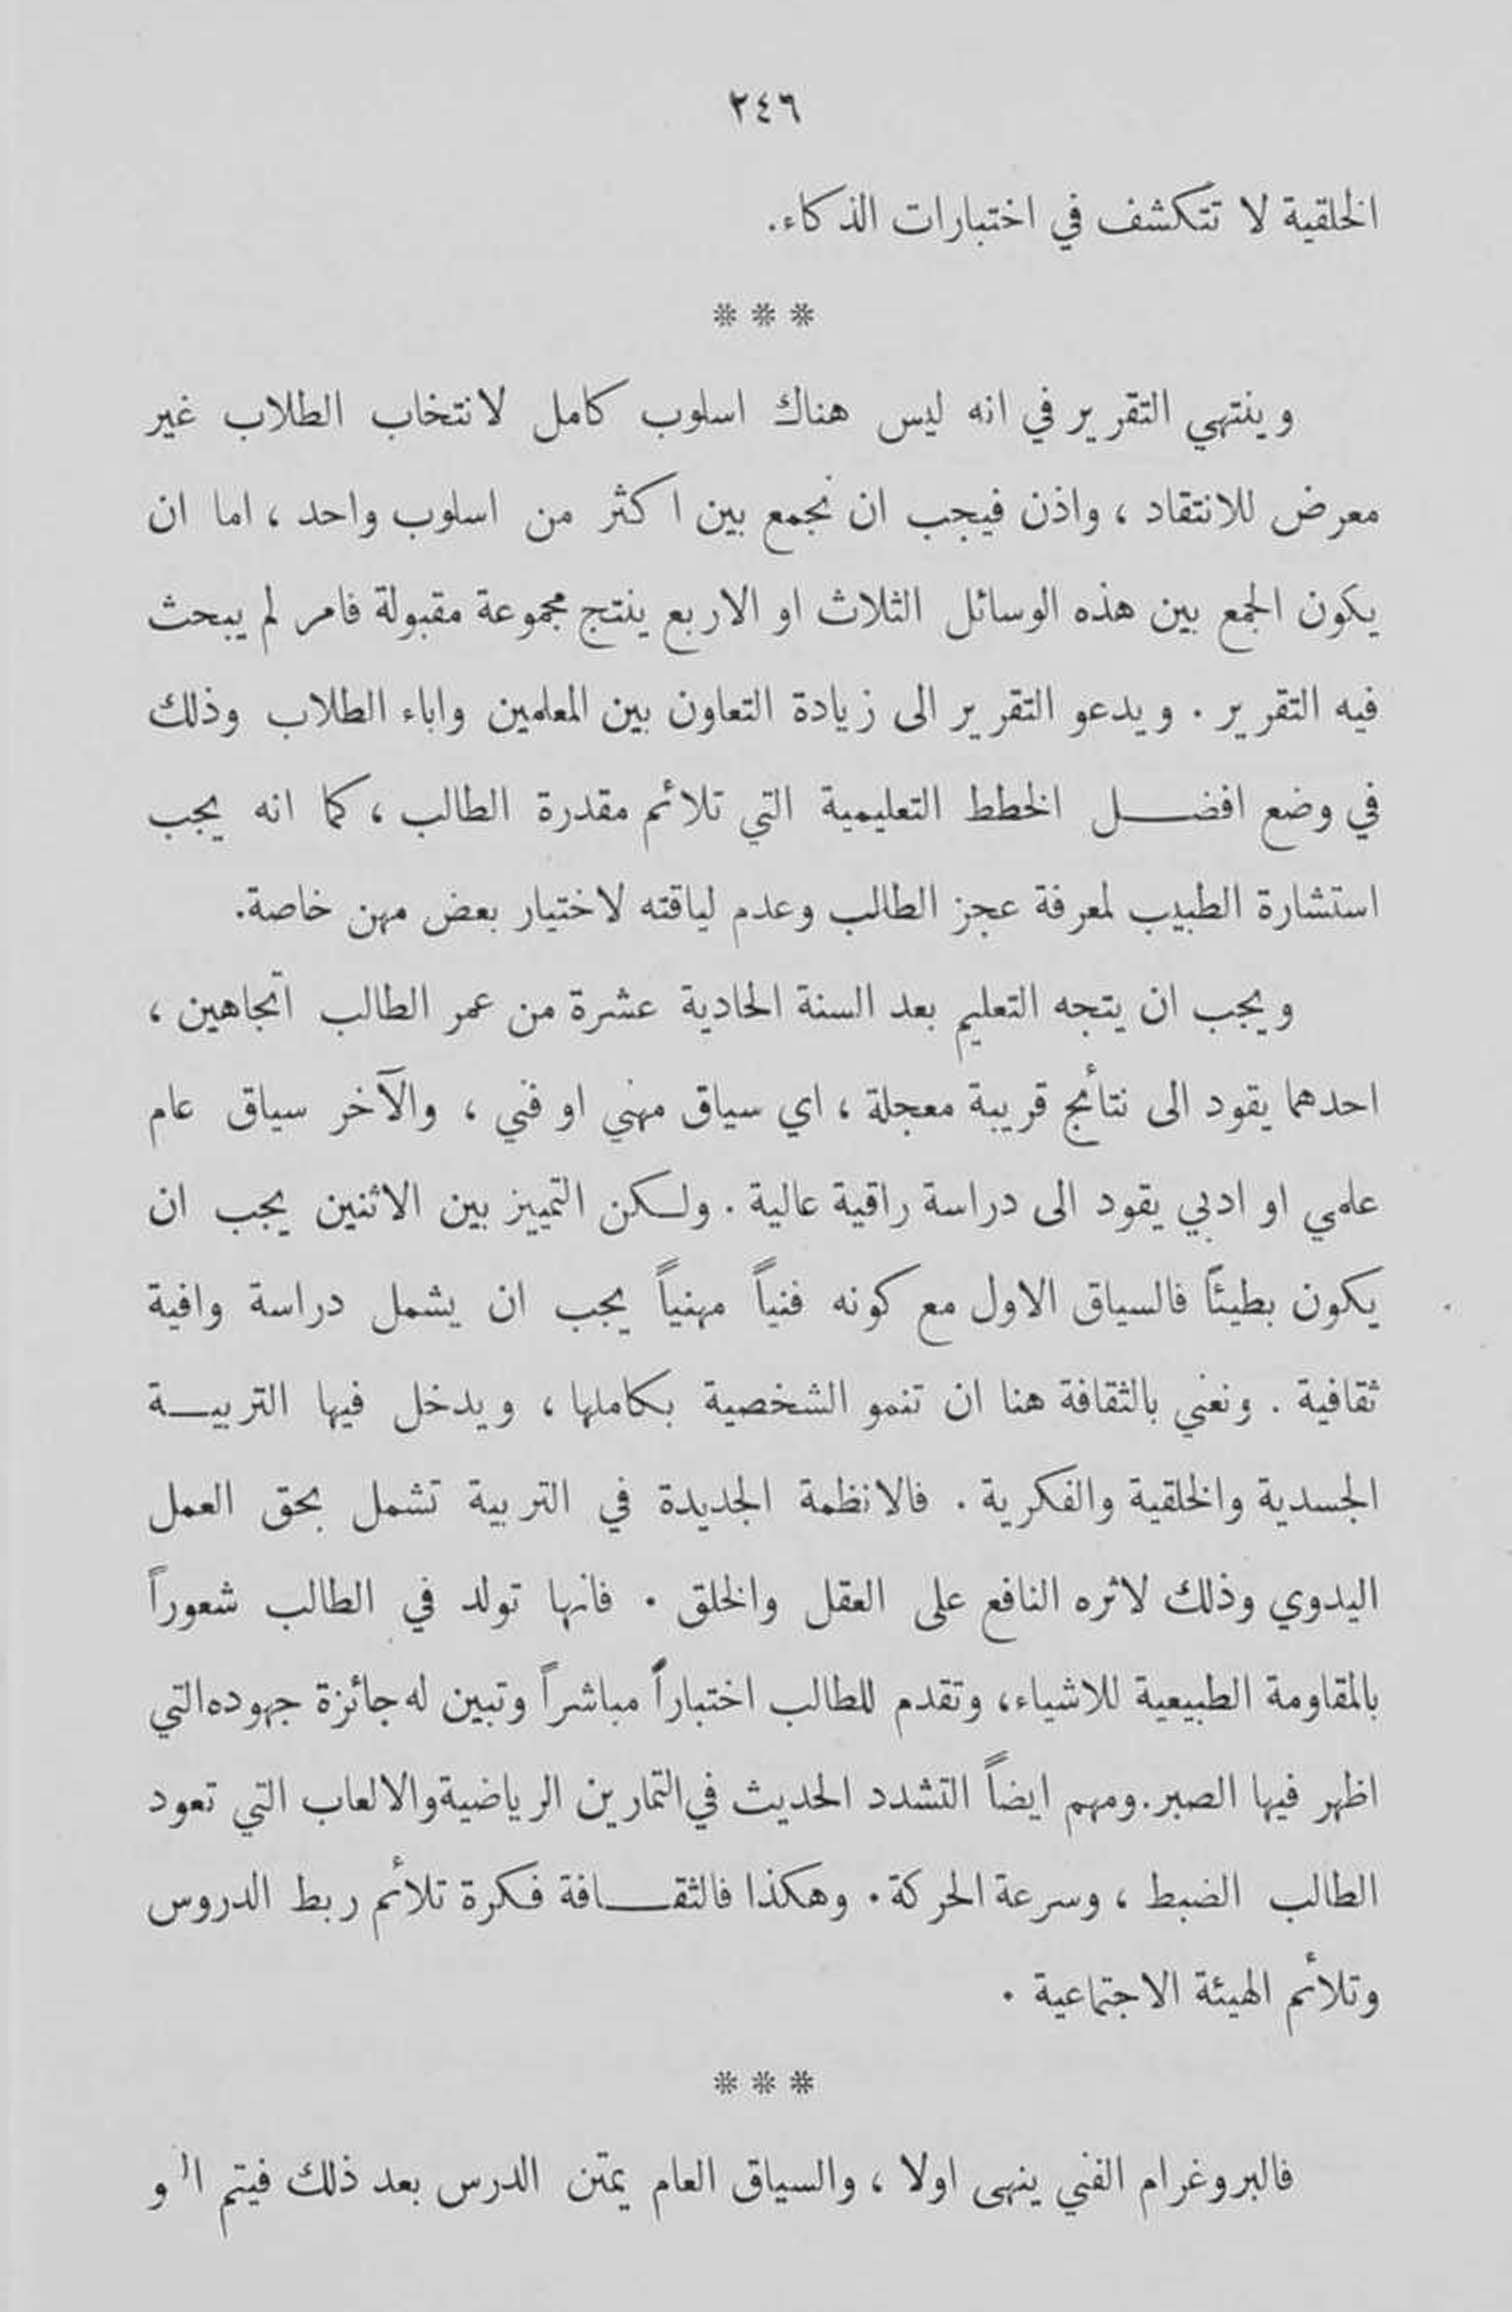 ٢٤٦
الخلقية لا تتكشف في اختبارات الذكاء.
* * *
وينتهي التقرير في انه ليس هناك اسلوب كامل لانتخاب الطلاب غير
معرض للانتقاد ، واذن فيجب ان نجمع بين اكثر من اسلوب واحد ، اما ان
يكون الجمع بين هذه الوسائل الثلاث او الاربع ينتج مجموعة مقبولة فامر لم يبحث
فيه التقرير . ويدعو التقرير الى زيادة التعاون بين المعلمين واباء الطلاب وذلك
في وضع افضل الخطط التعليمية التي تلائم مقدرة الطالب ، كما انه يجب
استشارة الطبيب لمعرفة عجز الطالب وعدم لياقته لاختيار بعض مهن خاصة.
ويجب ان يتجه التعليم بعد السنة الحادية عشرة من عمر الطالب اتجاهين ،
احدهما يقود الى نتائج قريبة معجلة ، اي سياق مهني او فني ، والآخر سياق عام
علمي او ادبي يقود الى دراسة راقية عالية . ولكن التمييز بين الاثنين يجب ان
يكون بطيئاً فالسياق الاول مع كونه فنياً مهنياً يجب ان يشمل دراسة وافية
ثقافية . ونعني بالثقافة هنا ان تنمو الشخصية بكاملها ، ويدخل فيها التربية
الجسدية والخلقية والفكرية . فالانظمة الجديدة في التربية تشمل بحق العمل
اليدوي وذلك لاثره النافع على العقل والخلق . فانها تولد في الطالب شعوراً
بالمقاومة الطبيعية للاشياء، وتقدم للطالب اختباراً مباشراً وتبين له جائزة جهوده التي
اظهر فيها الصبر. ومهم ايضاً التشدد الحديث في التمارين الرياضية والالعاب التي تعود
الطالب الضبط ، وسرعة الحركة . وهكذا فالثقافة فكرة تلائم ربط الدروس
وتلائم الهيئة الاجتماعية .
* * *
فالبروغرام الفني ينهى اولا ، والسياق العام يمتن الدرس بعد ذلك فيتم